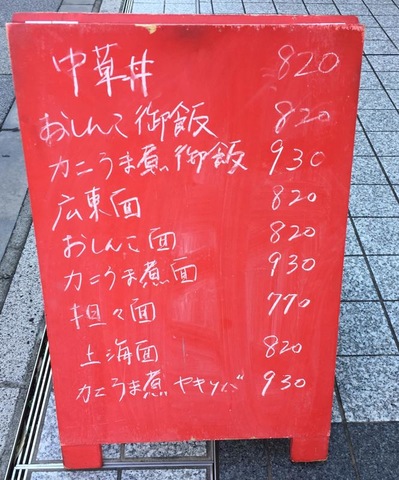 中華丼 820
おしんこ御飯 820
カニうま煮御飯 930
広東面 820
おしんこ面 820
カニうま煮面 930
坦々面 770
上海面 820
カニうま煮ヤキソバ 930